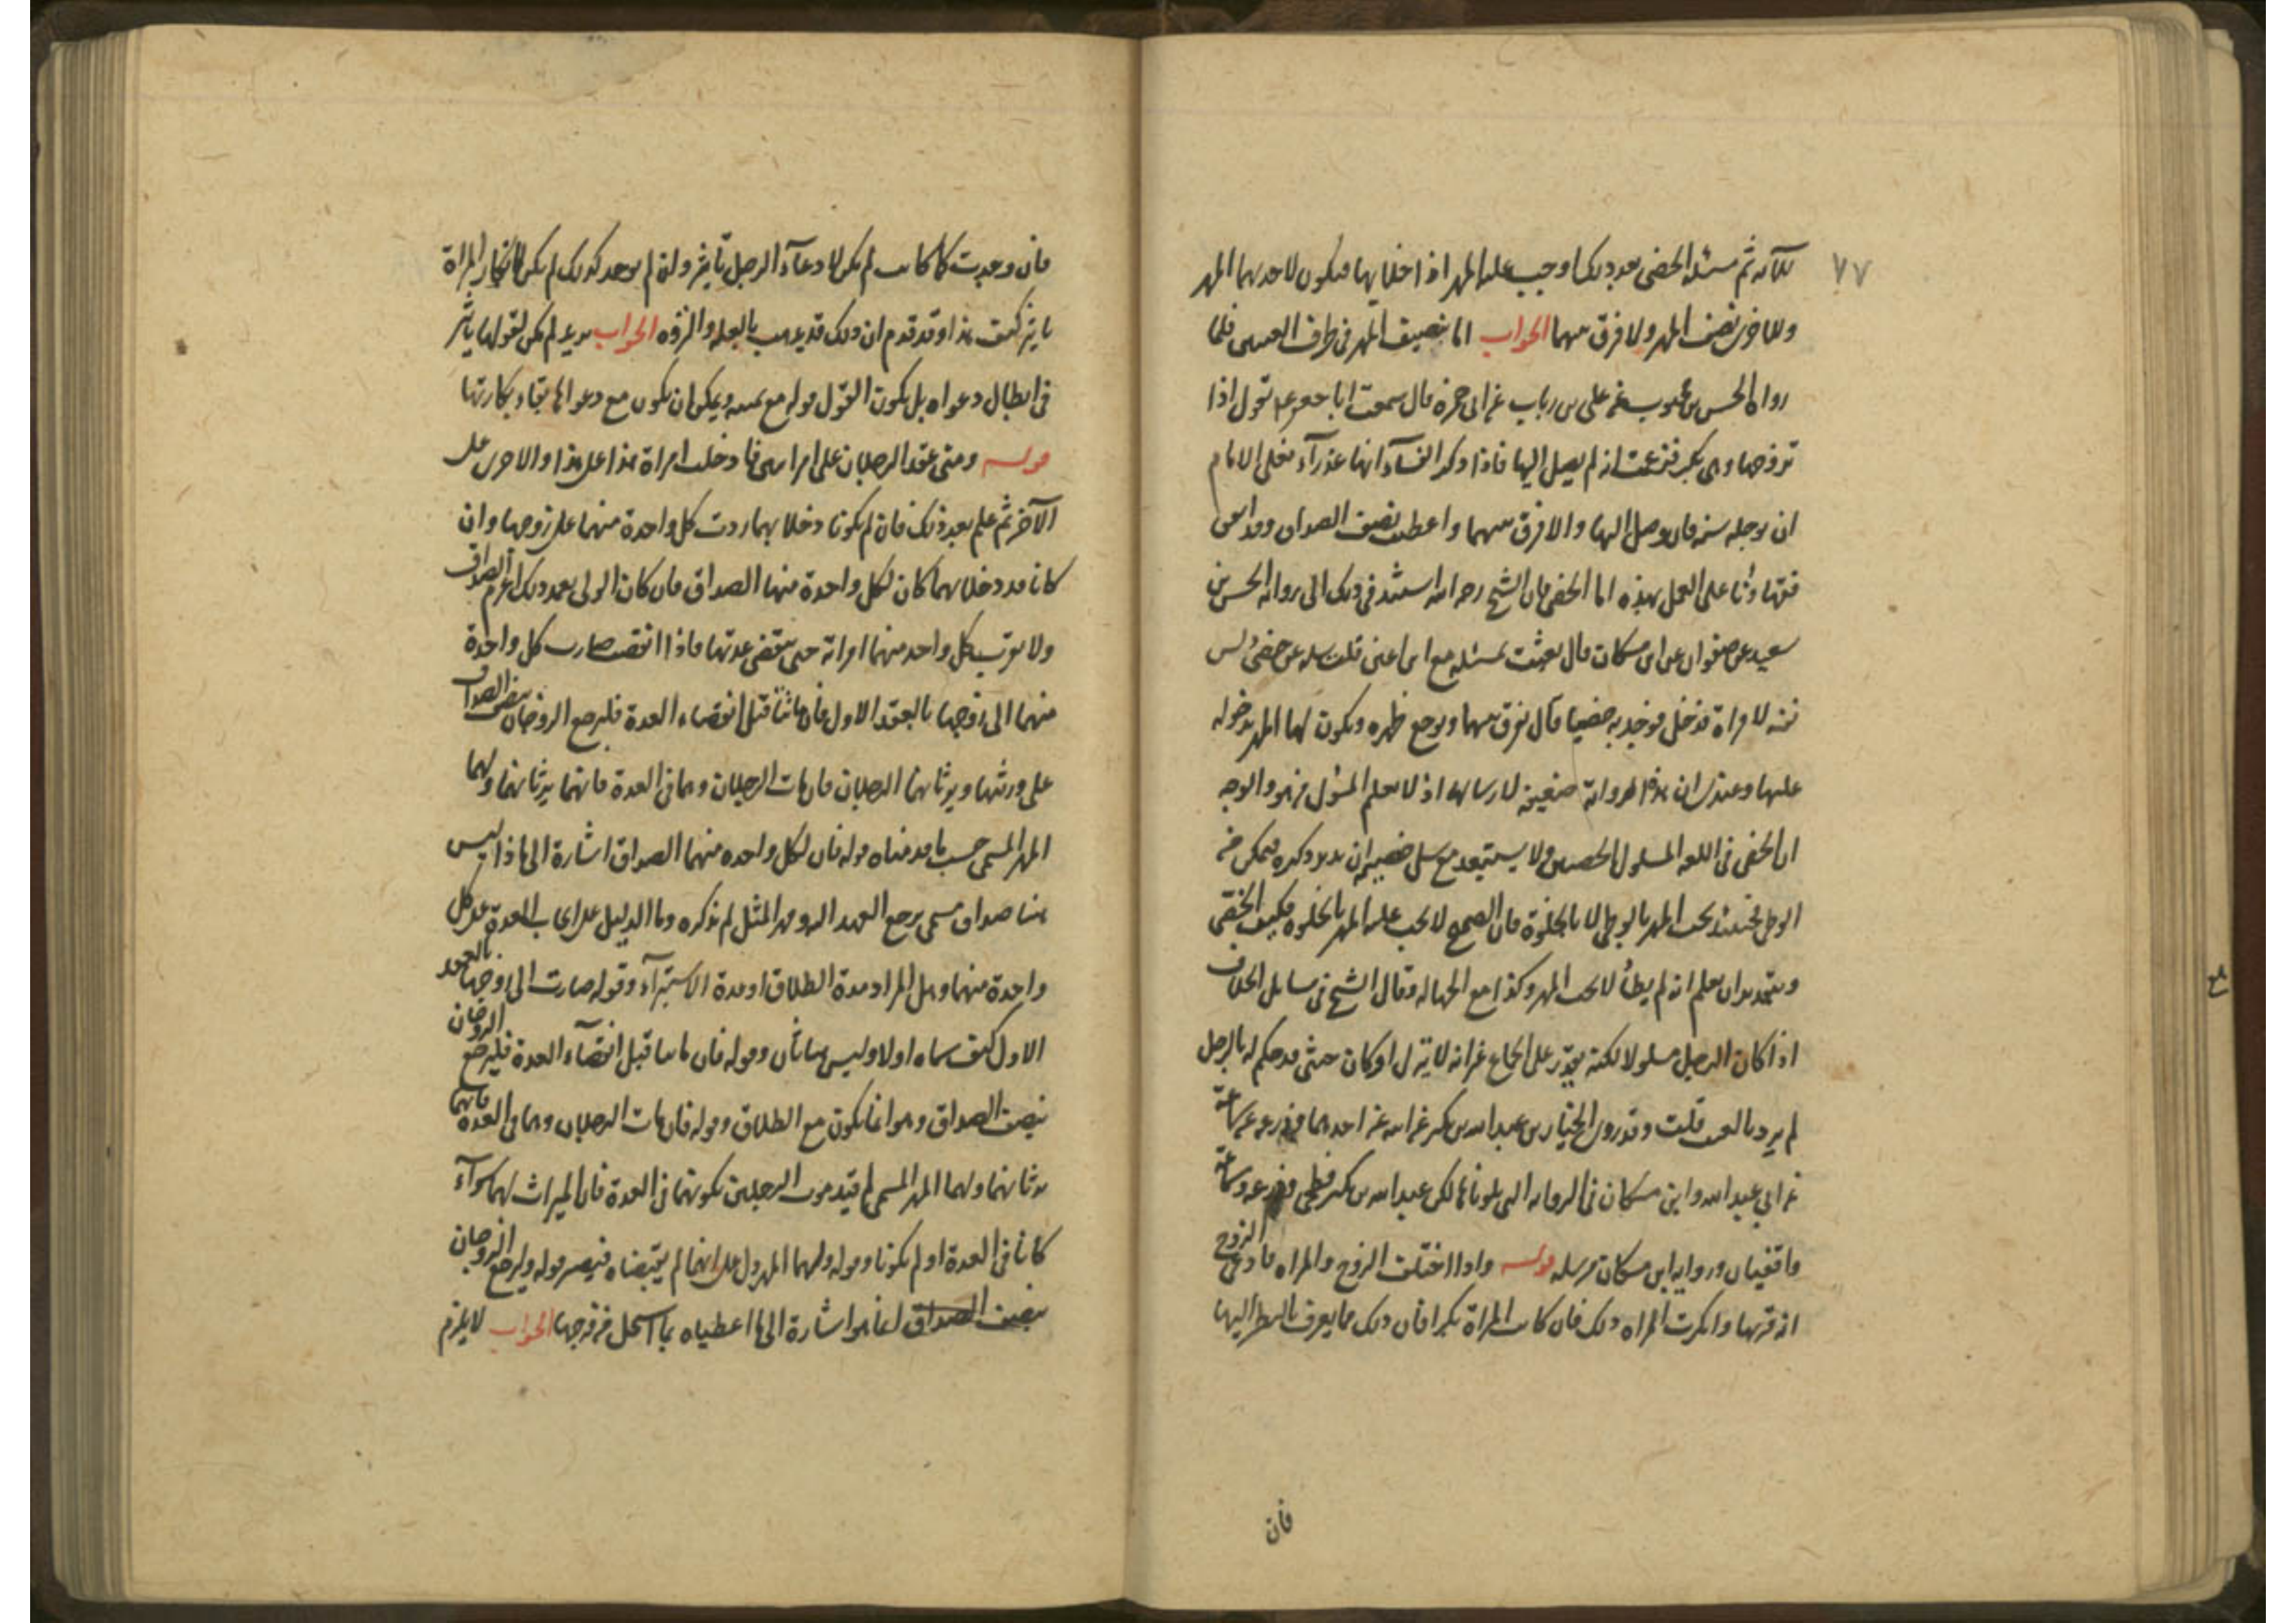 ٧٧
ثم مسئلة الخصي بعد ذلك اوجب عليه المهر اذا خلا بها فيكون لاحديهما المهر
وللاخرى نصف المهر ولا فرق بينهما الجواب اما تنصيف المهر في طرف العنين فلما
رواه الحسن بن محبوب عن علي بن رباب عن ابي حمزة قال سمعت ابا جعفر ع يقول اذا
تزوجها وهي بكر فزعمت انه لم يصل اليها فاذا ذكر النساء انها عذرآء فعلى الامام
ان يؤجله سنة فان وصل اليها والا فرق بينهما واعطيت نصف الصداق
فقهاؤنا على العمل بهذه اما الخصي فان الشيخ رحمه الله استند في ذلك الى رواية الحسين بن
سعيد عن صفوان عن ابن مسكان قال بعثت بمسئلة مع ابن اعين قلت سله عن خصي دلس
نفسه لامراة فدخل فوجد به خصيا قال يفرق بينهما ويوجع ظهره ويكون لها المهر بدخوله
عليها وعندي ان هذه الرواية ضعيفة لارسالها اذ لا يعلم المسؤل من هو والوجه
ان الخصي في اللغة المسلول الخصيتين ولا يستبعد مع سل خصييه ان ذكره فيمكن منه
الوطي فحينئذ يجب المهر بالوطي لا بالخلوة فان الصحيح لا يجب عليه المهر بالخلوة فكيف الخصي
وبتقدير ان يعلم انه لم يطأ لا يجب المهر وكذا مع الجهالة وقال الشيخ في مسايل الخلاف
اذا كان الرجل مسلولا لكنه يقدر على الجماع غير انه لا ينزل او كان خنثى قد حكم له بالرجل
لم يرد بالعيب قلت وقد روى عبد الله بن بكير عن ابيه عن احدهما وزرعة عن سماعة
عن ابي عبد الله وابن مسكان في الرواية التي تلوناها لكن عبد الله بن بكير فطحي وزرعة وسماعة
واقفيان ورواية ابن مسكان مرسلة قوله واذا اختلف الزوج والمراة فادعى الزوج
انه قربها وانكرت المراه ذلك فان كانت المراة بكرا فان ذلك مما يعرف بالنظر اليها
فان
فان وجدت كما كانت لم يكن لادعآء الرجل تأثير وان لم توجد كذلك لم يكن لانكار المراة
تاثير كيف هذا وقد تقدم ان ذلك قد يذهب بالعلة والنزوة الجواب يريد لم يكن لقولها تاثير
في ابطال دعواه بل يكون القول قوله مع يمينه ويمكن ان يكون مع دعواها بقاء بكارتها
قوله ومتى عقد الرجلان على امراتين فادخلت امراة هذا على هذا والاخرى على
الآخر ثم علم بعد ذلك فان لم يكونا دخلا بهما ردت كل واحدة منهما على زوجها وان
كانا قد دخلا بهما كان لكل واحدة منهما الصداق فان كان الولي تعمد ذلك اغرم الصداق
ولا يقرب كل واحد منهما امراته حتى تنقضي عدتها فاذا انقضت صارت كل واحدة
منهما الى زوجها بالعقد الاول فان ماتتا قبل انقضاء العدة فليرجع الزوجان بنصف الصداق
على ورثتهما ويرثانهما الرجلان فان مات الرجلان وهما في العدة فانهما يرثانهما ولهما
المهر المسمى حسب ما قدمناه قوله فان لكل واحده منهما الصداق اشارة الى ماذا ليس
هنا صداق مسمى يرجع العهد اليه ومهر المثل لم يذكره وما الدليل على ايجاب العدة على كل
واحدة منهما وهل المراد مدة الطلاق او مدة الاستبرآء وقوله صارت الى زوجها بالعقد
الاول كيف سماه اولا وليس هنا ثان وقوله فان ماتتا قبل انقضآء العدة فليرجع الزوجان
بنصف الصداق وهو انما يكون مع الطلاق وقوله فان مات الرجلان وهما في العدة فانهما
يرثانهما ولهما المهر المسمى لم قيد موت الرجلين بكونهما في العدة فان الميراث لهما سوآء
كانا في العدة او لم يكونا وقوله ولهما المهر دل على انهما لم يقبضاه فيصير قوله وليرجع الزوجان
بنصف الصداق انما هو اشارة الى ما اعطياه بما استحل من فرجها الجواب لا يلزم